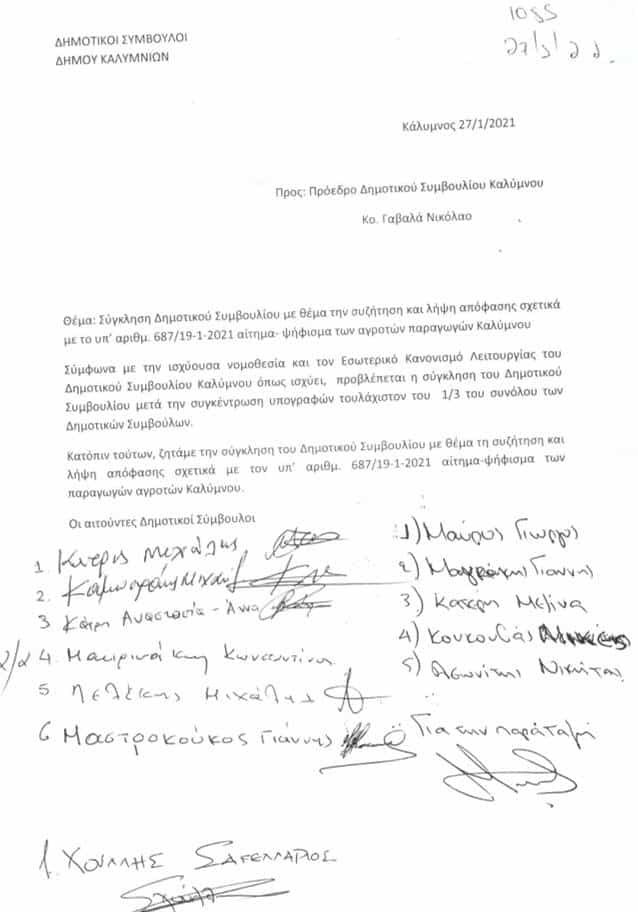 ΔΗΜΟΤΙΚΟΙ ΣΥΜΒΟΥΛΟΙ
ΔΗΜΟΥ ΚΑΛΥΜΝΙΩΝ
1055
27/1/21
Κάλυμνος 27/1/2021
Προς: Πρόεδρο Δημοτικού Συμβουλίου Καλύμνου
Κο. Γαβαλά Νικόλαο
Θέμα: Σύγκληση Δημοτικού Συμβουλίου με θέμα την συζήτηση και λήψη απόφασης σχετικά
με το υπ’ αριθμ. 687/19-1-2021 αίτημα- ψήφισμα των αγροτών παραγωγών Καλύμνου
Σύμφωνα με την ισχύουσα νομοθεσία και τον Εσωτερικό Κανονισμό Λειτουργίας του
Δημοτικού Συμβουλίου Καλύμνου όπως ισχύει, προβλέπεται η σύγκληση του Δημοτικού
Συμβουλίου μετά την συγκέντρωση υπογραφών τουλάχιστον του 1/3 του συνόλου των
Δημοτικών Συμβούλων.
Κατόπιν τούτων, ζητάμε την σύγκληση του Δημοτικού Συμβουλίου με θέμα τη συζήτηση και
λήψη απόφασης σχετικά με τον υπ’ αριθμ. 687/19-1-2021 αίτημα-ψήφισμα των
παραγωγών αγροτών Καλύμνου.
Οι αιτούντες Δημοτικοί Σύμβουλοι
1 Μιχάλης
2.
3 Κάρη Αναστασία - Άννα
4. Κωνσταντίνα
5 Πελέκης Μιχάλης
6 Μαστροκούκος Γιάννης
1) Μαύρος Γιώργος
2) Γιάννης
3) Κατέρη Μελίνα
4) Κουκουβάς
5) Ασωνίτης Νικήτας
Για την παράταξη
1. ΧΟΥΛΛΗΣ ΣΑΚΕΛΛΑΡΙΟΣ